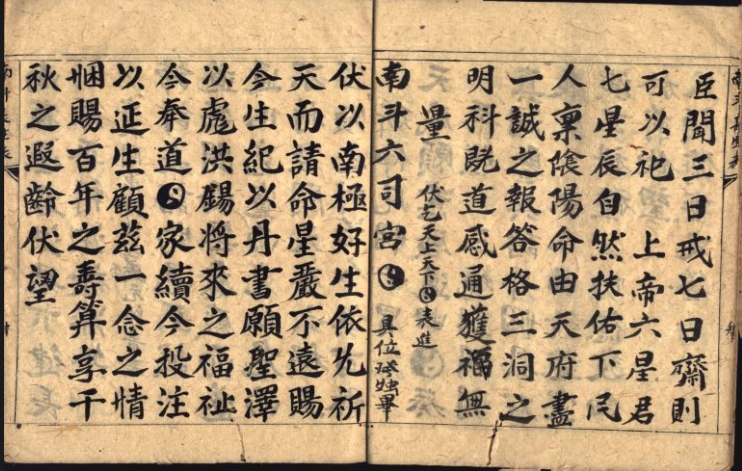 臣聞三日戒七日齋則
可以祀 上帝六星君
七星辰自然扶佑下民
人禀陰陽命由天府盡
一誠之報答格三洞之
明科既道感通獲福無
量 伏乞天上天下 表進
南斗六司宮 具位 畢
伏以南極好生依允祈
天而請命星嚴不遠賜
今生紀以丹書願聖澤
以洪錫將來之福祉
今奉道 家續今投注
以延生顧茲一念之情
悃賜百年之壽算享千
秋之遐齡伏望